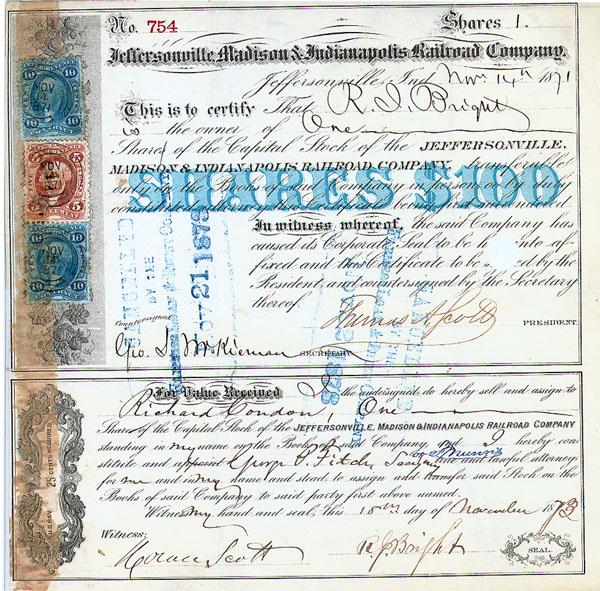 No. 754 Shares 1.
Jeffersonville Madison & Indianapolis Railroad Company.
Jeffersonville, Ind. Nov. 14th 1871
This is to certify That R. J. Bright
is the owner of One
Shares of the Capital Stock of the JEFFERSONVILLE,
MADISON & INDIANAPOLIS RAILROAD COMPANY, transferable
only by the Books of said Company in person or by Attorney
SHARES $100
In witness whereof, the said Company has
caused its Corporate Seal to be hereinto af-
fixed and this Certificate to be signed by the
President, and countersigned by the Secretary
thereof.
Countersigned
Thomas A. Scott PRESIDENT.
Geo. S. McKiernan SECRETARY
21 1873
For Value Received I the undersigned, do hereby sell and assign to
Richard Condon, One
Shares of the Capital Stock of the JEFFERSONVILLE, MADISON & INDIANAPOLIS RAILROAD COMPANY
standing in my name on the Books of said Company, and I hereby con-
stitute and appoint George P. Fitch, and lawful attorneys
for me and in my name and stead to assign and transfer said Stock on the
Books of said Company to said party first above named.
Witness my hand and seal, this 18th day of November 1873
Witness:
Horace Scott R J Bright
SEAL.
10 10
NOV
1871
10 10
5 5
NOV
5 5
10 10
NOV
1871
10 10
25 CENTS